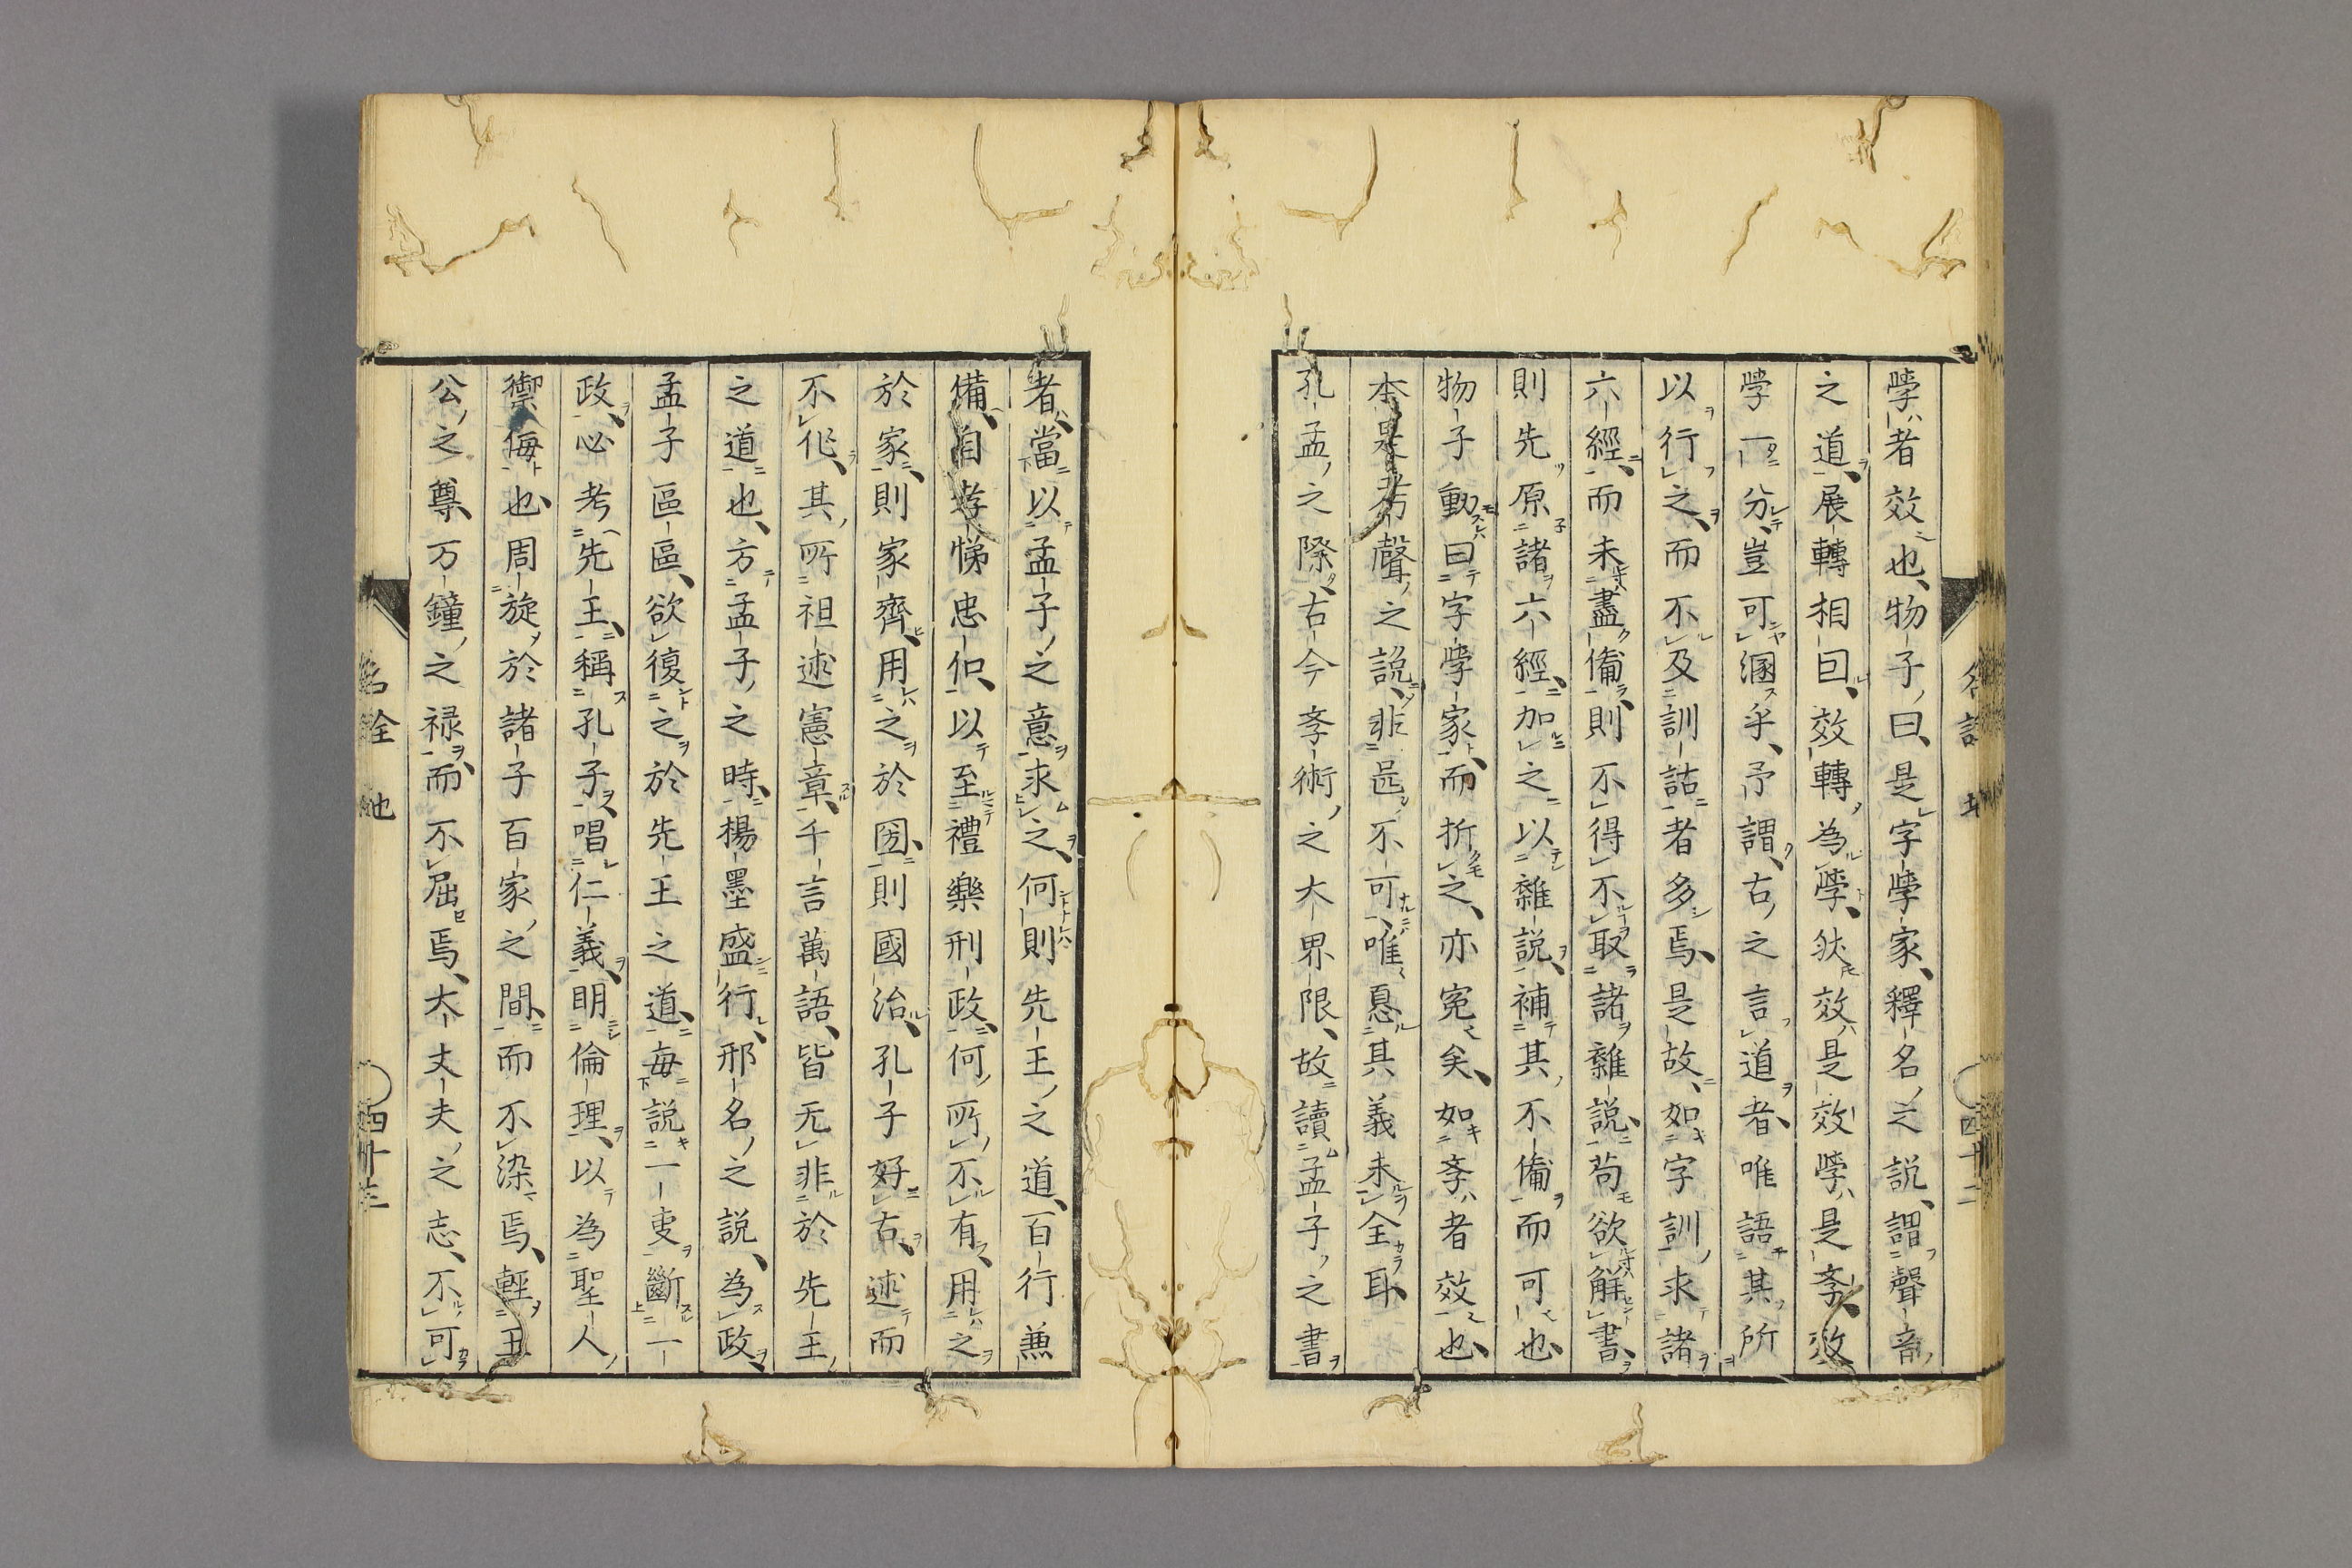 學者效也物子曰是字學家釋名之説謂聲音
之道展轉相囙效轉為學狀效是效學是斈效
學一分豈可溷乎予謂古之言道者唯語其所
以行之而不及訓詁者多焉是故如字訓求諸
六經而未盡僃則不得不取諸雜説茍欲解書
則先原諸六經加之以雜説補其不僃而可也
物子動曰字學家而折之亦寃矣如斈者效也
本是芳聲之説非是不可唯息其義未全耳
孔孟之際古今斈術之大界限故讀孟子之書
者當以孟子之意求之何則先王之道百行兼
備自孝悌忠信以至禮樂刑政何所不有用之
於家則家齊用之於國則國治孔子好古述而
不作其所祖述憲章千言萬語皆无非於先王
之道也方孟子之時楊墨盛行邪名之説為政
孟子區區欲復之於先王之道每説一事斷一
政必考先王稱孔子唱仁義明倫理以為聖人
禦侮也周旋於諸子百家之間而不染焉輕王
公之尊万鐘之禄而不屈焉大丈夫之志不可
名詮 地 四十三